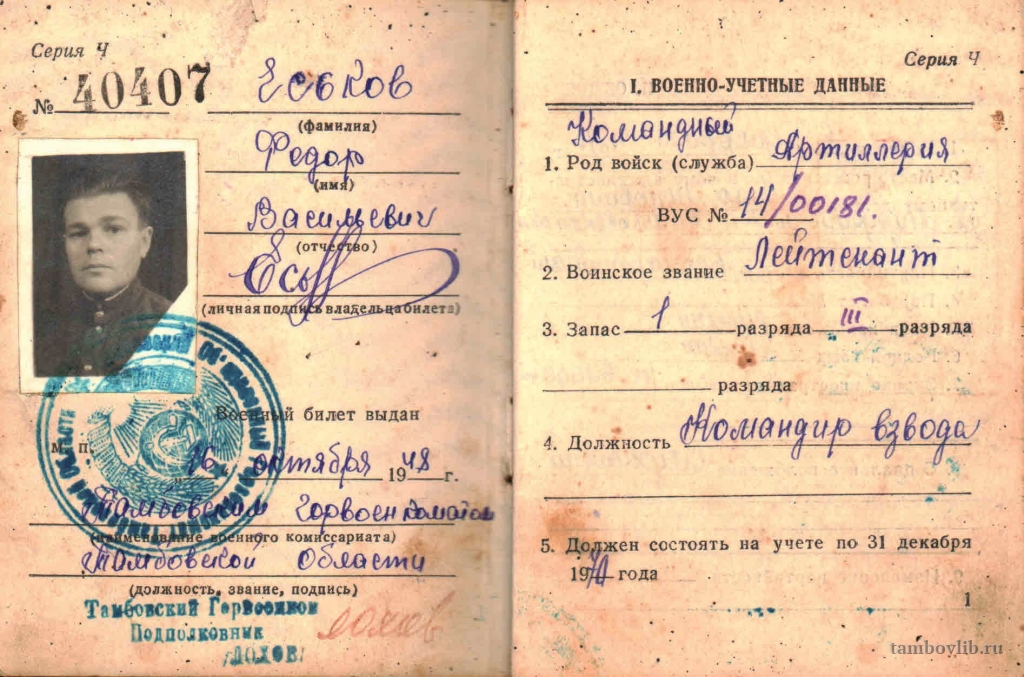 Серия Ч
№ 40407
Еськов
(фамилия)
Федор
(имя)
Васильевич
(отчество)
(личная подпись владельца билета)
Военный билет выдан
М. П.
"16" октября 1948 г.
Тамбовским Горвоенкоматом
(наименование военного комиссариата)
Тамбовской области
(должность, звание, подпись)
Тамбовский Горвоенком
Подполковник
/ЛОХОВ/
Серия Ч
I. ВОЕННО-УЧЕТНЫЕ ДАННЫЕ
Командный
1. Род войск (служба) Артиллерия
ВУС № 14/00181.
2. Воинское звание Лейтенант
3. Запас 1 разряда III разряда
разряда
4. Должность Командир взвода
5. Должен состоять на учете по 31 декабря
19 года
1
tamboylib.ru